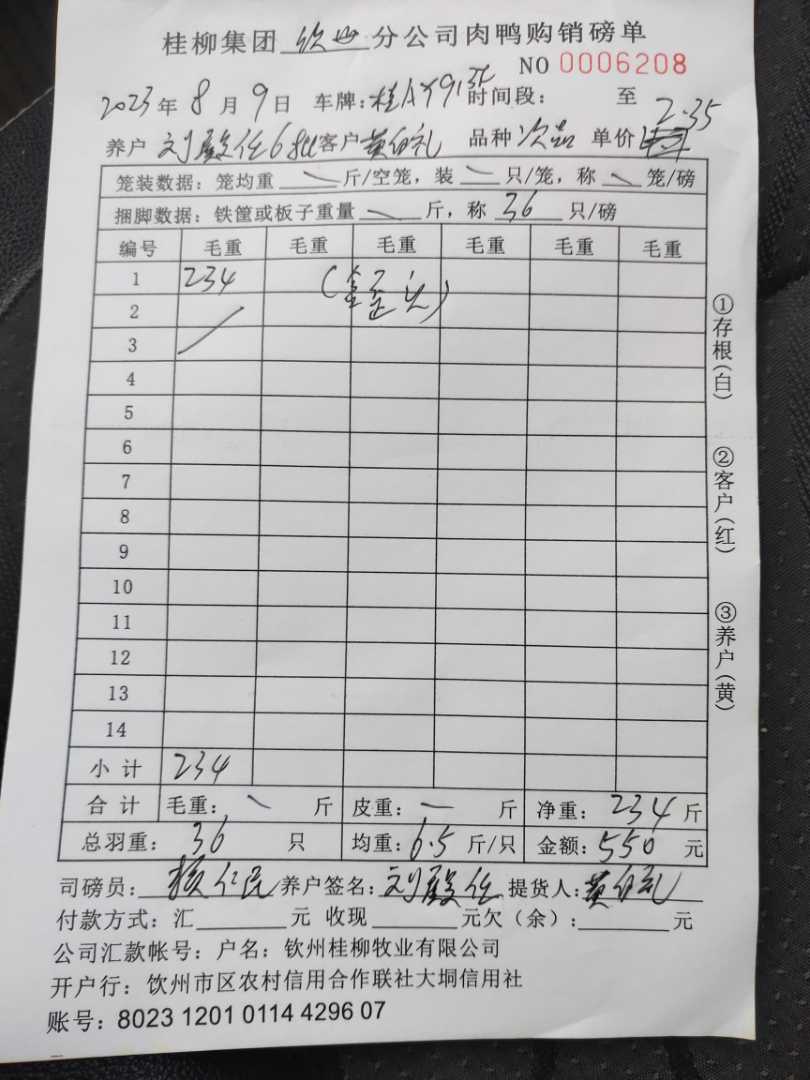 桂柳集团 钦州 分公司肉鸭购销磅单
NO 0006208
2023 年 8 月 9 日 车牌: 时间段: 至
养户 刘 任6批 客户 黄 礼 品种 次品 单价 2.35
笼装数据: 笼均重 斤/空笼, 装 只/笼, 称 笼/磅
捆脚数据: 铁筐或板子重量 斤, 称 36 只/磅
编号 毛重 毛重 毛重 毛重 毛重 毛重
1 234 (含歪头)
2
3
4
5
6
7
8
9
10
11
12
13
14
小计 234
合计 毛重: 斤 皮重: 斤 净重: 234 斤
总羽重: 36 只 均重: 6.5 斤/只 金额: 550 元
司磅员: 仁民 养户签名: 刘 任 提货人: 黄 礼
付款方式: 汇 元 收现 元欠(余): 元
公司汇款帐号: 户名: 钦州桂柳牧业有限公司
开户行: 饮州市区农村信用合作联社大垌信用社
账号: 8023 1201 0114 4296 07
①存根(白)
②客户(红)
③养户(黄)